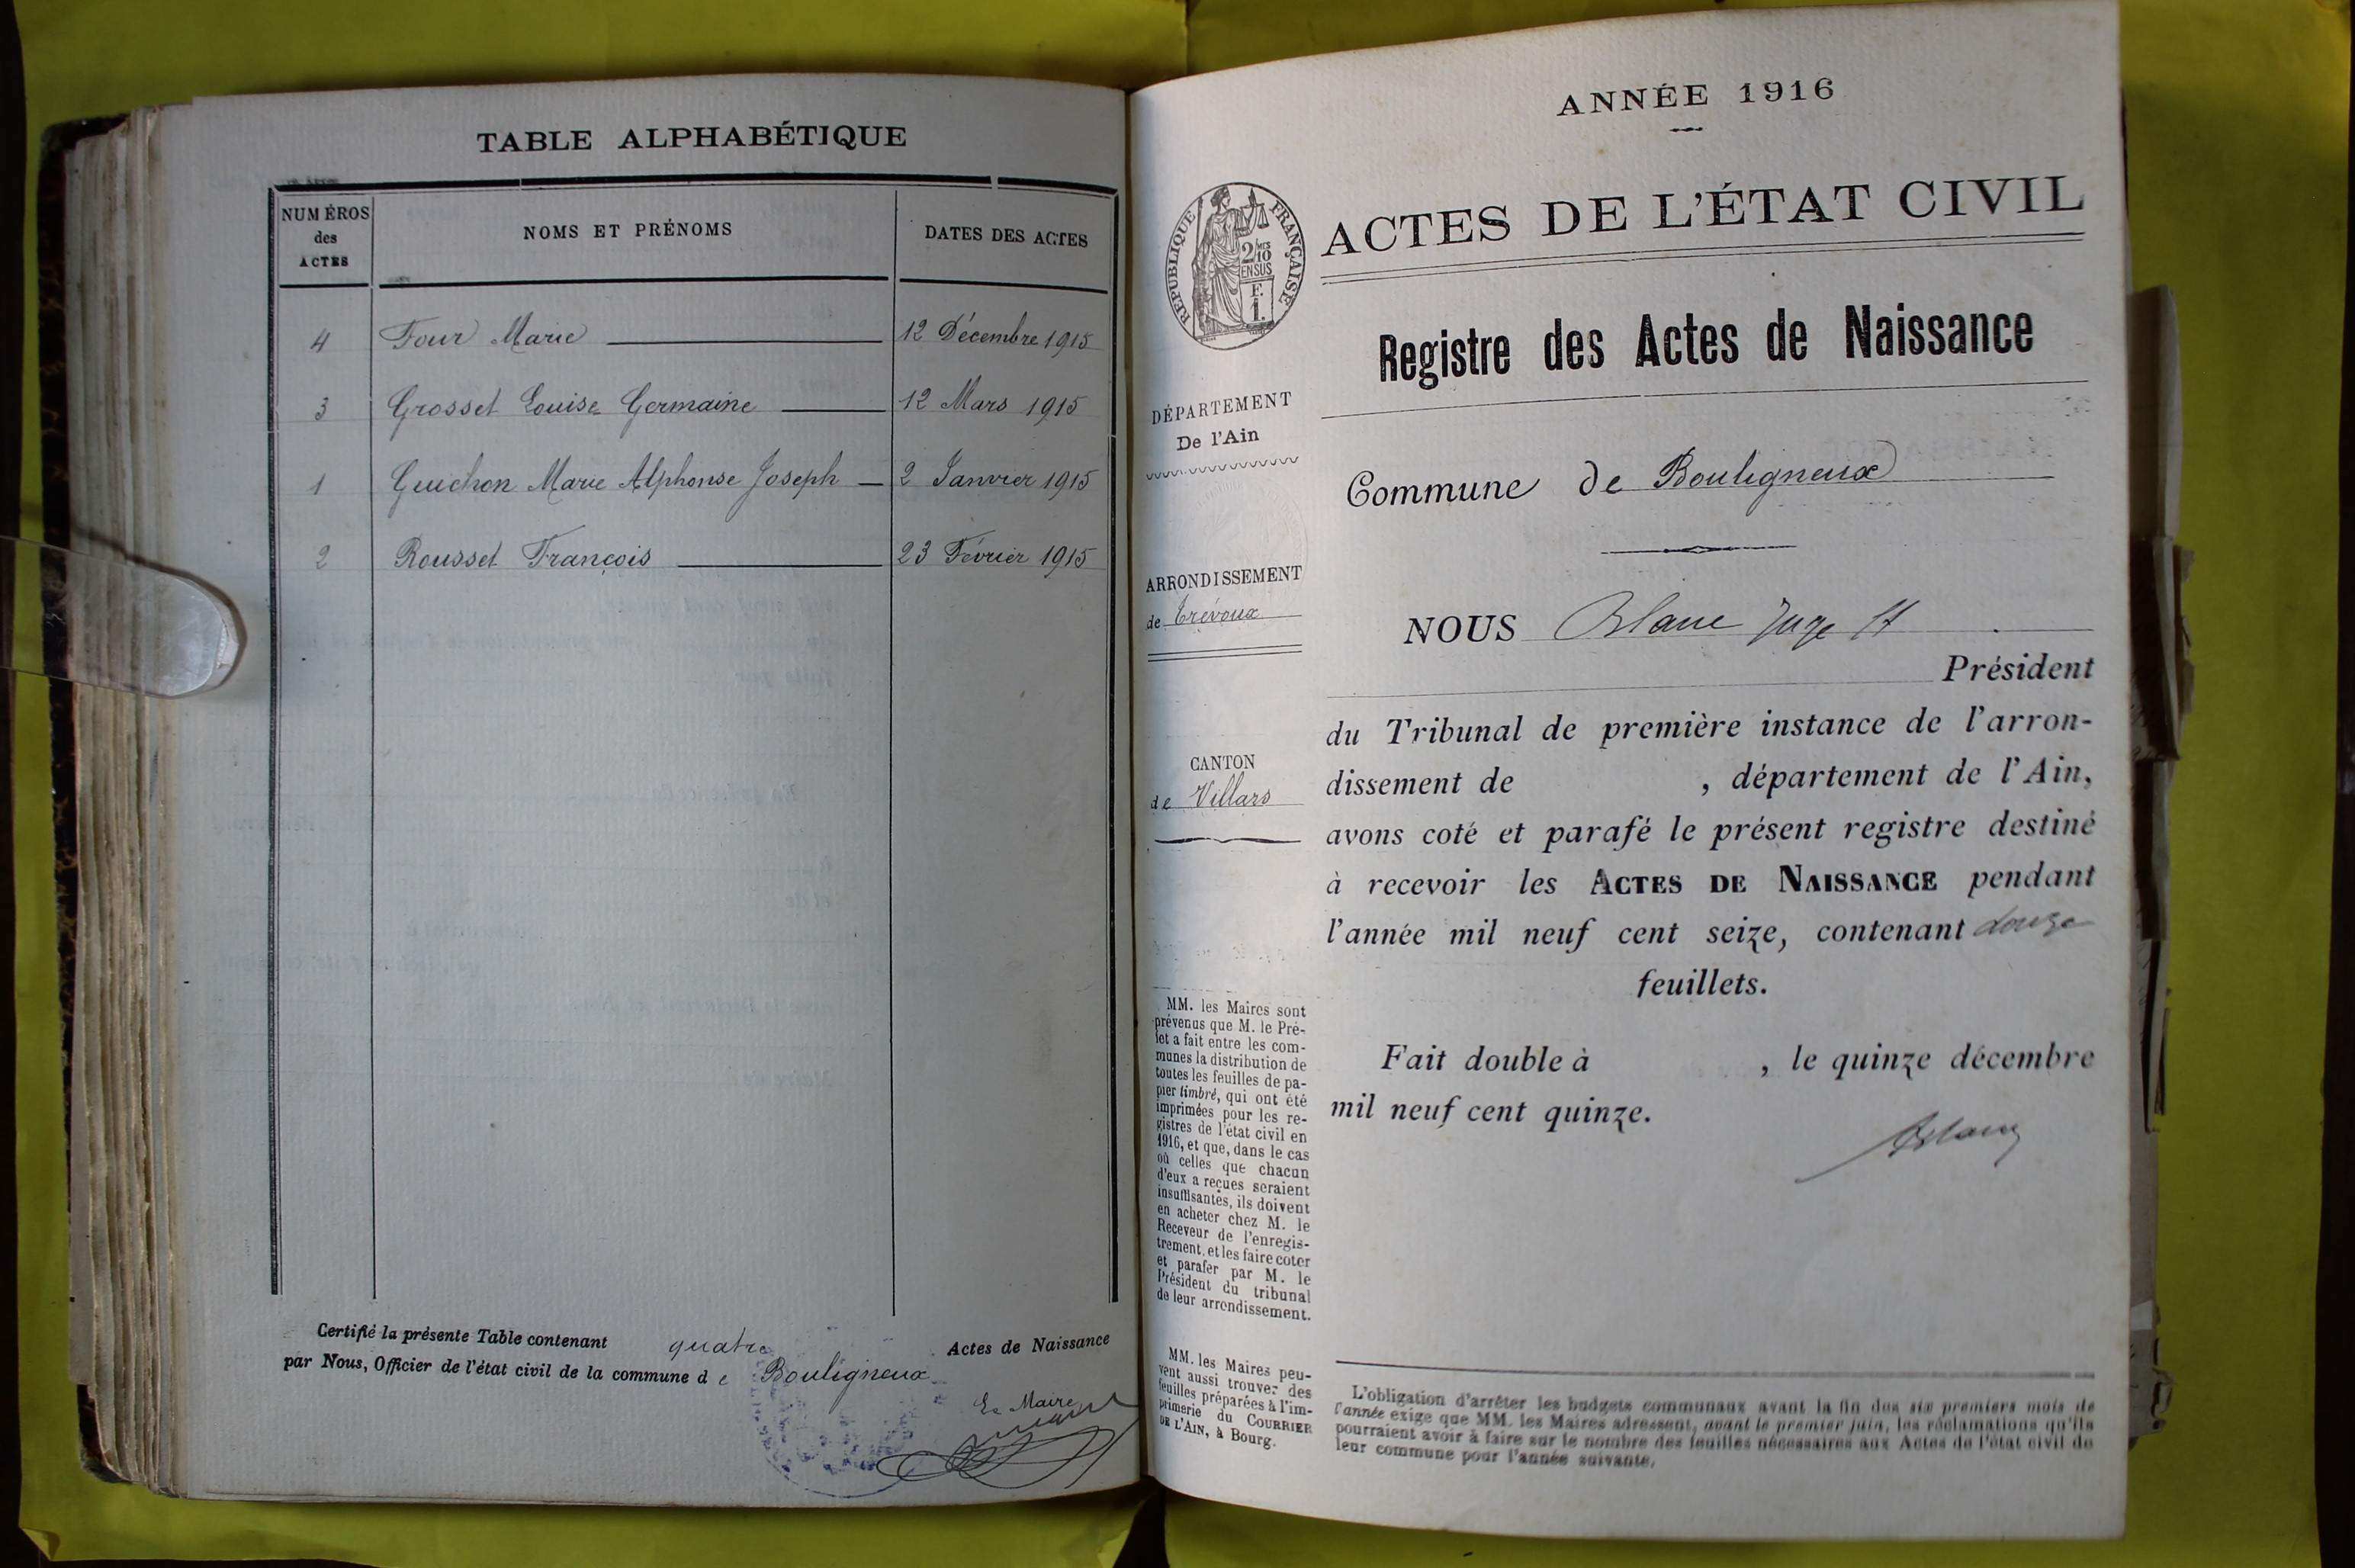 TABLE ALPHABÉTIQUE
NUMÉROS
des
ACTES
NOMS ET PRÉNOMS
DATES DES ACTES
4 Four Marie 12 Décembre 1915
3 Grosset Louise Germaine 12 Mars 1915
1 Guichon Marie Alphonse Joseph 2 Janvier 1915
2 Rousset François 23 Février 1915
Certifié la présente Table contenant quatre Actes de Naissance
par Nous, Officier de l'état civil de la commune de Bouligneux
Le Maire
ANNÉE 1916
REPUBLIQUE FRANÇAISE
2/10
EN SUS
F.
1.
ACTES DE L'ÉTAT CIVIL
Registre des Actes de Naissance
DÉPARTEMENT
De l'Ain
Commune de Bouligneux
ARRONDISSEMENT
de Trévoux
NOUS Blanc Juge
Président
du Tribunal de première instance de l'arron-
CANTON
de Villars
dissement de , département de l'Ain,
avons coté et parafé le présent registre destiné
à recevoir les ACTES DE NAISSANCE pendant
l'année mil neuf cent seize, contenant douze
feuillets.
Fait double à , le quinze décembre
mil neuf cent quinze.
Blanc
MM. les Maires sont
prévenus que M. le Pré-
fet a fait entre les com-
munes la distribution de
toutes les feuilles de pa-
pier timbré, qui ont été
imprimées pour les re-
gistres de l'état civil en
1916, et que, dans le cas
où celles que chacun
d'eux a reçues seraient
insuffisantes, ils doivent
en acheter chez M. le
Receveur de l'enregis-
trement, et les faire coter
et parafer par M. le
Président du tribunal
de leur arrondissement.
MM. les Maires peu-
vent aussi trouver des
feuilles préparées à l'im-
primerie du COURRIER
DE L'AIN, à Bourg.
L'obligation d'arrêter les budgets communaux avant la fin des six premiers mois de
l'année exige que MM. les Maires adressent, avant le premier juin, les réclamations qu'ils
pourraient avoir à faire sur le nombre des feuilles nécessaires aux Actes de l'état civil de
leur commune pour l'année suivante.